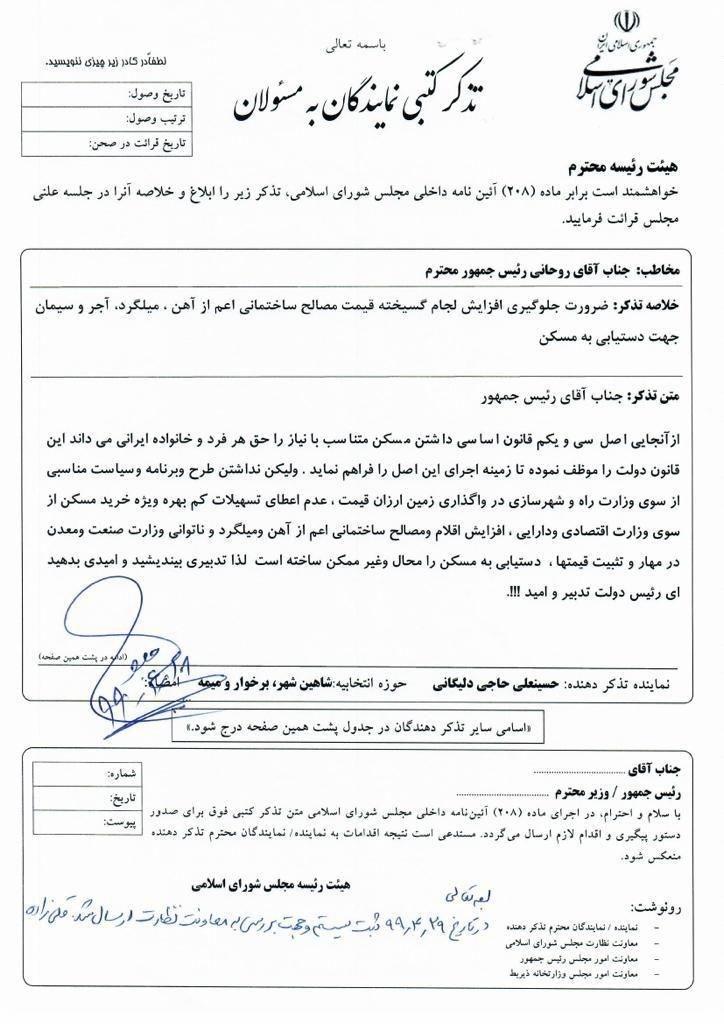 جمهوری اسلامی ایران
مجلس شورای اسلامی
باسمه تعالی
تذکر کتبی نمایندگان به مسئولان
لطفاً در کادر زیر چیزی ننویسید.
تاریخ وصول:
ترتیب وصول:
تاریخ قرائت در صحن:
هیئت رئیسه محترم
خواهشمند است برابر ماده (۲۰۸) آئین نامه داخلی مجلس شورای اسلامی، تذکر زیر را ابلاغ و خلاصه آنرا در جلسه علنی
مجلس قرائت فرمایید.
مخاطب: جناب آقای روحانی رئیس جمهور محترم
خلاصه تذکر: ضرورت جلوگیری افزایش لجام گسیخته قیمت مصالح ساختمانی اعم از آهن ، میلگرد، آجر و سیمان
جهت دستیابی به مسکن
متن تذکر: جناب آقای رئیس جمهور
ازآنجایی اصل سی و یکم قانون اساسی داشتن مسکن متناسب با نیاز را حق هر فرد و خانواده ایرانی می داند این
قانون دولت را موظف نموده تا زمینه اجرای این اصل را فراهم نماید . ولیکن نداشتن طرح وبرنامه وسیاست مناسبی
از سوی وزارت راه و شهرسازی در واگذاری زمین ارزان قیمت ، عدم اعطای تسهیلات کم بهره ویژه خرید مسکن از
سوی وزارت اقتصادی ودارایی ، افزایش اقلام ومصالح ساختمانی اعم از آهن ومیلگرد و ناتوانی وزارت صنعت ومعدن
در مهار و تثبیت قیمتها ، دستیابی به مسکن را محال وغیر ممکن ساخته است لذا تدبیری بیندیشید و امیدی بدهید
ای رئیس دولت تدبیر و امید !!!.
(ادامه در پشت همین صفحه)
نماینده تذکر دهنده: حسینعلی حاجی دلیگانی حوزه انتخابیه:شاهین شهر، برخوار و میمه امضاء:
«اسامی سایر تذکر دهندگان در جدول پشت همین صفحه درج شود.»
شماره:
تاریخ:
پیوست:
جناب آقای ..............................
رئیس جمهور / وزیر محترم ..............................
با سلام و احترام، در اجرای ماده (۲۰۸) آئین‌نامه داخلی مجلس شورای اسلامی متن تذکر کتبی فوق برای صدور
دستور پیگیری و اقدام لازم ارسال می‌گردد. مستدعی است نتیجه اقدامات به نماینده/ نمایندگان محترم تذکر دهنده
منعکس شود.
هیئت رئیسه مجلس شورای اسلامی
بسمه تعالی
در تاریخ ۹۹٫۴٫۲۹ ثبت سیستم و جهت بررسی به معاونت نظارت ارسال شد. قلی زاده
رونوشت:
- نماینده / نمایندگان محترم تذکر دهنده
- معاونت نظارت مجلس شورای اسلامی
- معاونت امور مجلس رئیس جمهور
- معاونت امور مجلس وزارتخانه ذیربط